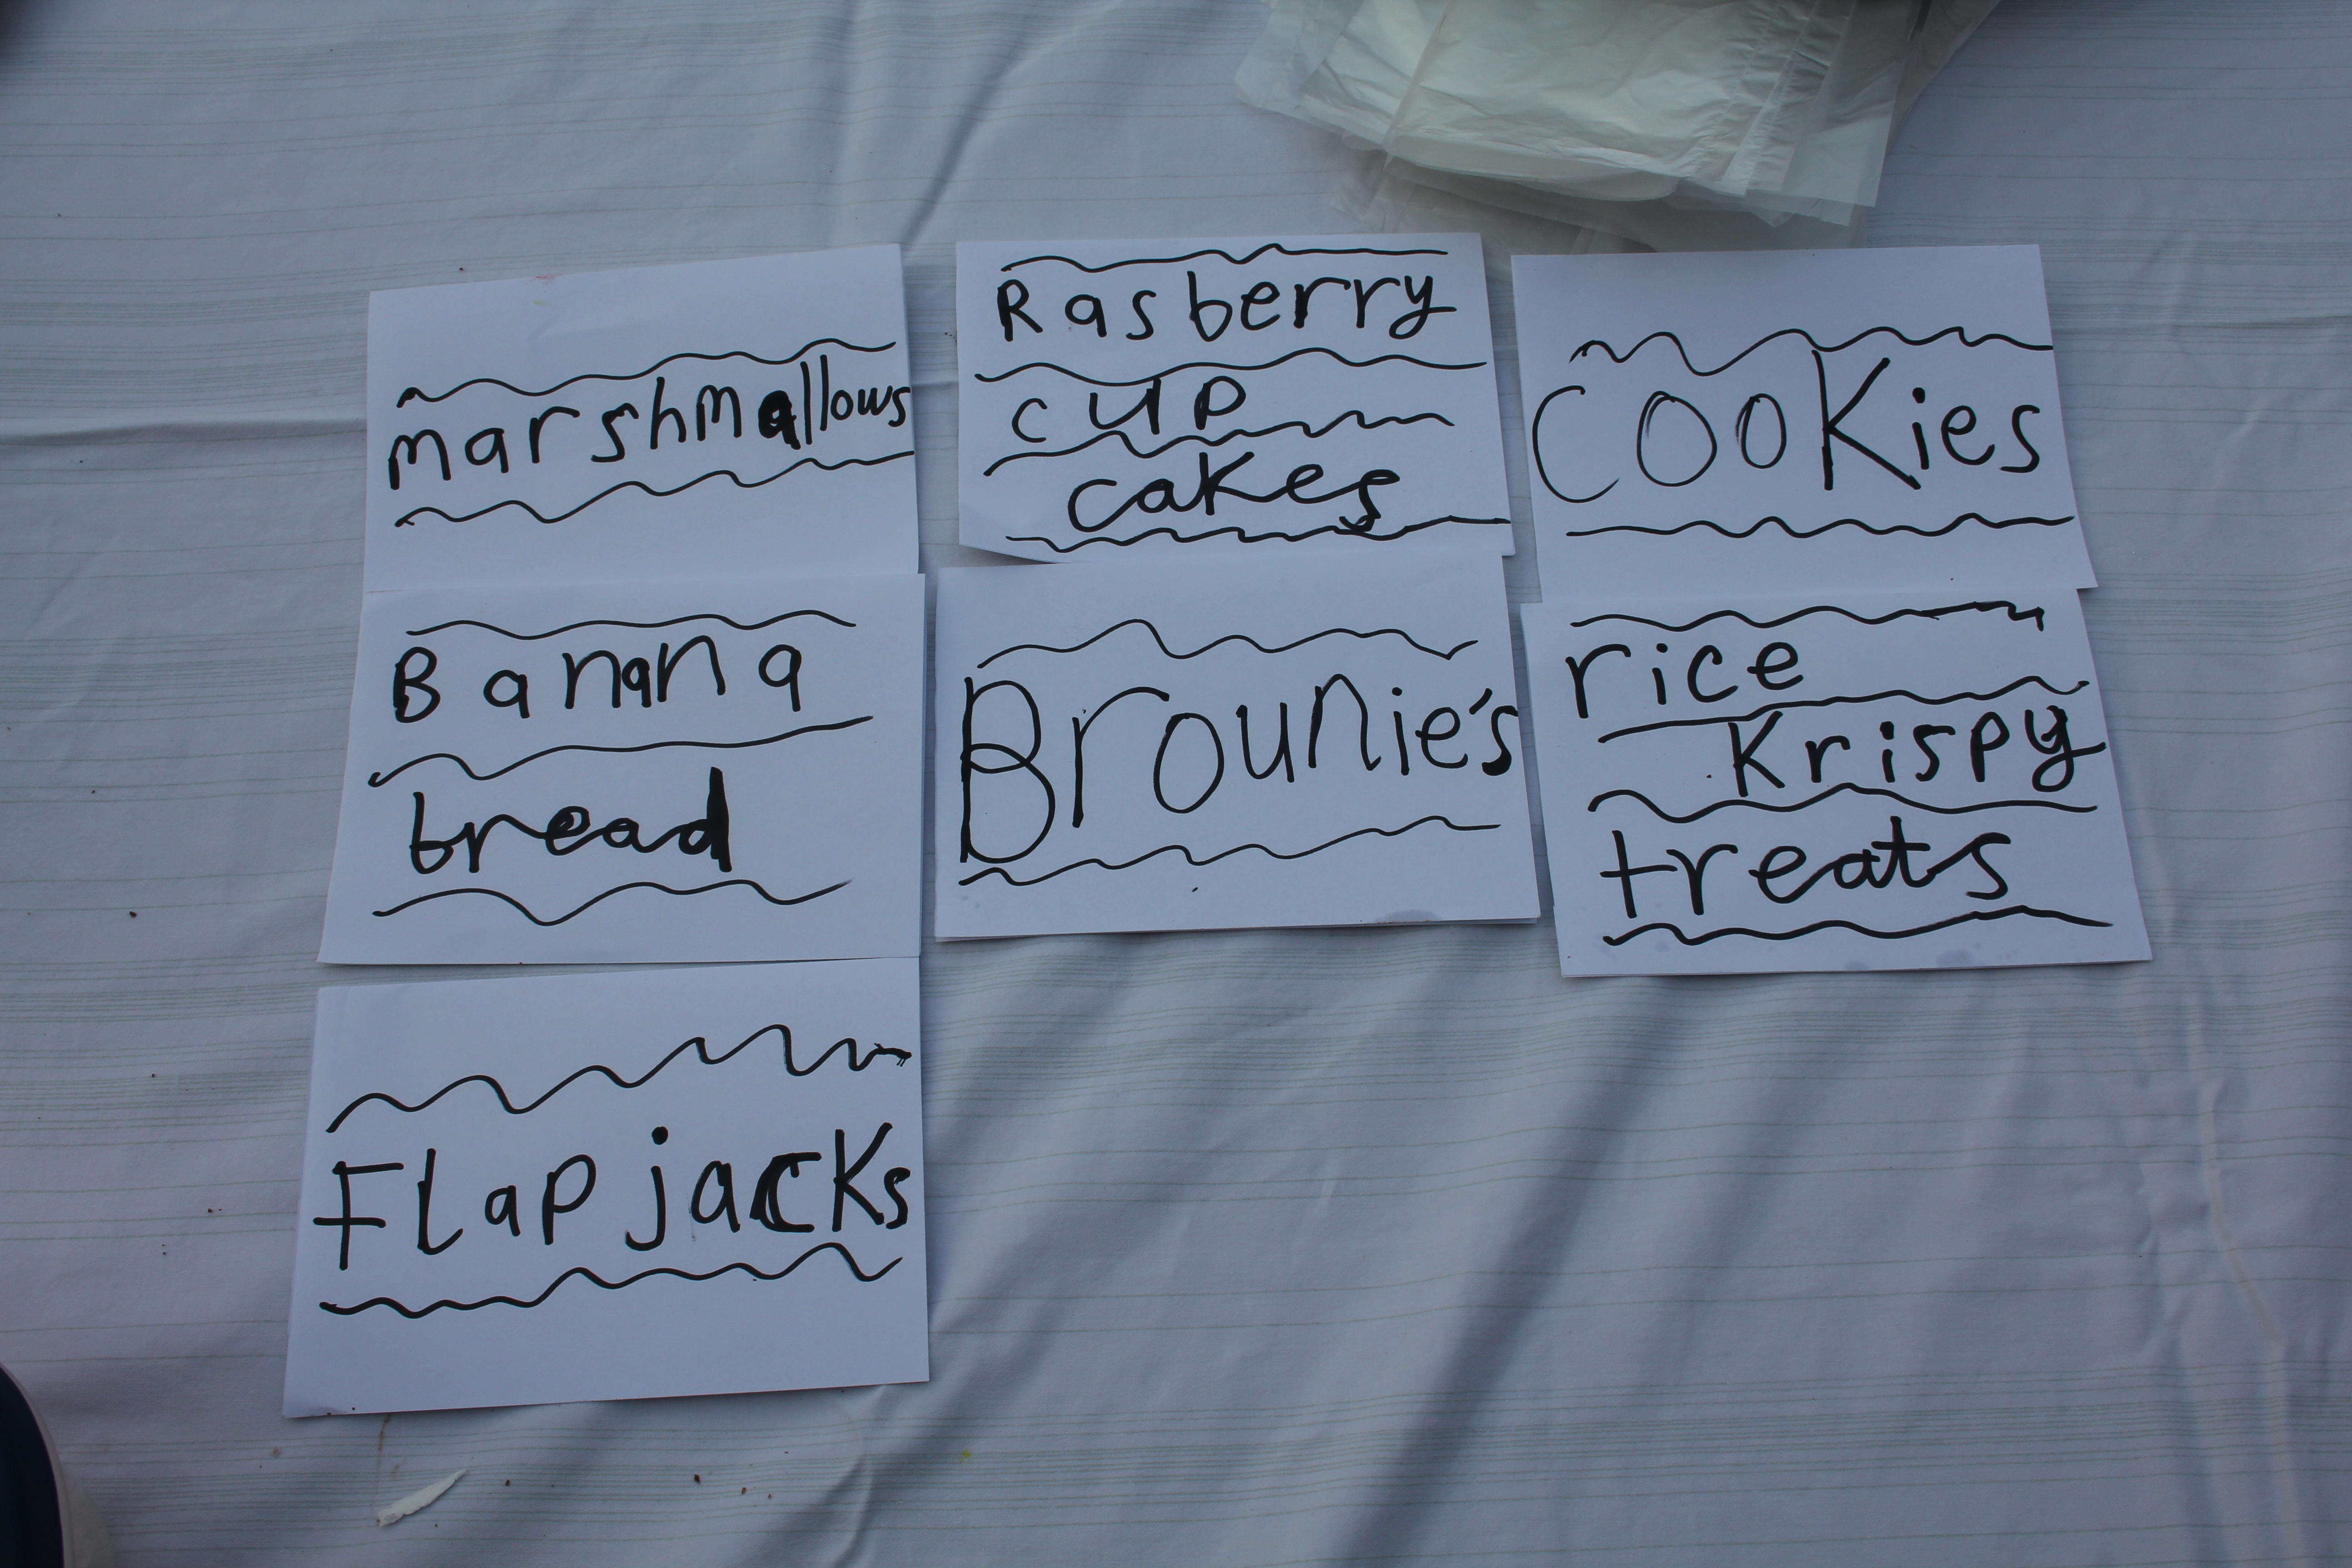 marshmallows
Rasberry
cup
cakes
cooKies
Banana
bread
Brounie's
rice
Krispy
treats
FlapjacKs